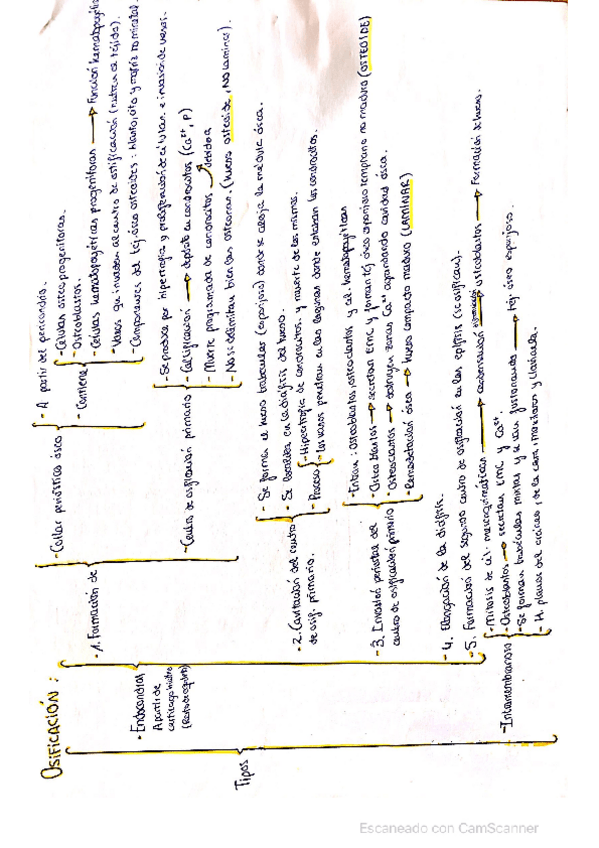 OSIFICACIÓN:
Tipos
- Endocondral
A partir de
cartílago hialino
- 1. Formación de
- Collar perióstico óseo
- A partir del pericondrio.
- Contiene
- Células osteoprogenitoras.
- Osteoblastos.
- Células hematopoyéticas progenitoras → Función hematopoyética
- Vasos que invaden al centro de osificación (nutren el tejido).
- Componentes del tej. óseo osteoide: y matriz no mineral.
- Centro de osificación primario
- Se produce por hipertrofia y proliferación de células. e invasión de vasos.
- Calcificación → depósito en condrocitos (Ca²⁺, P)
- Muerte programada de condrocitos debidoa
- No se delimitan bien las osteonas. (hueso osteoide, NO laminar).
- 2. Cavitación del centro
de osif. primario.
- Se forma el hueso trabecular (esponjoso) donde se aloja la médula ósea.
- Se localiza en la diáfisis del hueso.
- Proceso
- Hipertrofia de condrocitos, y muerte de los mismos.
- los vasos penetran en las lagunas donde estaban los condrocitos.
- 3. Invasión perióstica del
centro de osificación primario
- Entran: Osteoblastos, osteoclastos y cel. hematopoyéticas
- Osteoblastos → secretan EMC y forman tej óseo esponjoso temprano no maduro (OSTEOIDE)
- Osteoclastos → destruyen zonas Ca²⁺ agrandando cavidad ósea.
- Remodelación ósea → hueso compacto maduro (LAMINAR)
- 4. Elongación de la diáfisis.
- 5. Formación del segundo centro de osificación en las epífisis (se osifican).
- Intramembranosa
- Mitosis de cél. mesenquimáticas → condensación → osteoblastos → Formación de hueso.
- Osteoblastos → secretan EMC y Ca²⁺.
- Se forman trabéculas mixtas y se van fusionando → tej óseo esponjoso.
- H. planos del cráneo, de la cara, maxilares y clavícula.
Escaneado con CamScanner